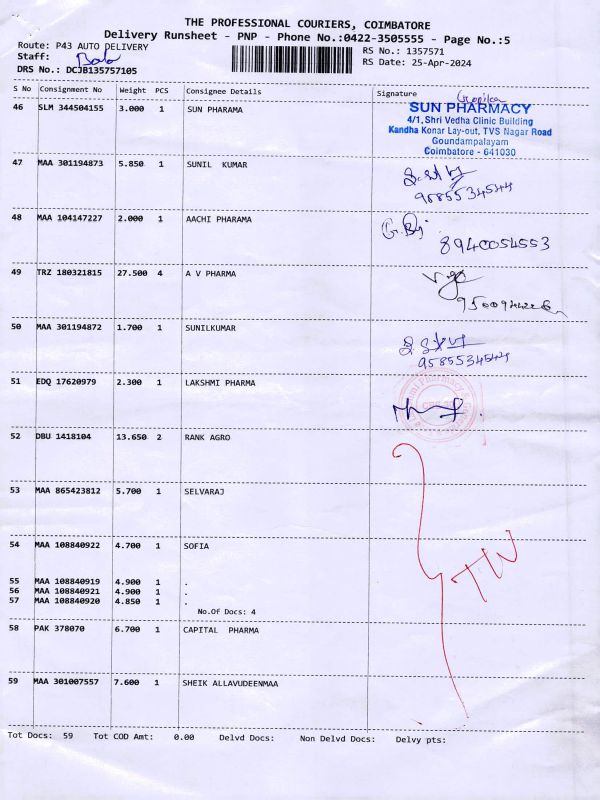 THE PROFESSIONAL COURIERS, COIMBATORE
Delivery Runsheet - PNP - Phone No.:0422-3505555 - Page No.:5
Route: P43 AUTO DELIVERY
RS No.: 1357571
Staff: Bala
RS Date: 25-Apr-2024
DRS No.: DCJB135757105
S No Consignment No Weight PCS Consignee Details Signature
46 SLM 344504155 3.000 1 SUN PHARAMA
SUN PHARMACY
4/1, Shri Vedha Clinic Building
Kandha Konar Lay-out, TVS Nagar Road
Goundampalayam
Coimbatore - 641030
47 MAA 301194873 5.850 1 SUNIL KUMAR
9585534544
48 MAA 104147227 2.000 1 AACHI PHARAMA
8940054553
49 TRZ 180321815 27.500 4 A V PHARMA
50 MAA 301194872 1.700 1 SUNILKUMAR
9585534544
51 EDQ 17620979 2.300 1 LAKSHMI PHARMA
52 DBU 1418104 13.650 2 RANK AGRO
53 MAA 865423812 5.700 1 SELVARAJ
54 MAA 108840922 4.700 1 SOFIA
55 MAA 108840919 4.900 1 .
56 MAA 108840921 4.900 1 .
57 MAA 108840920 4.850 1 .
No.Of Docs: 4
TW
58 PAK 378070 6.700 1 CAPITAL PHARMA
59 MAA 301007557 7.600 1 SHEIK ALLAVUDEENMAA
Tot Docs: 59 Tot COD Amt: 0.00 Delvd Docs: Non Delvd Docs: Delvy pts: